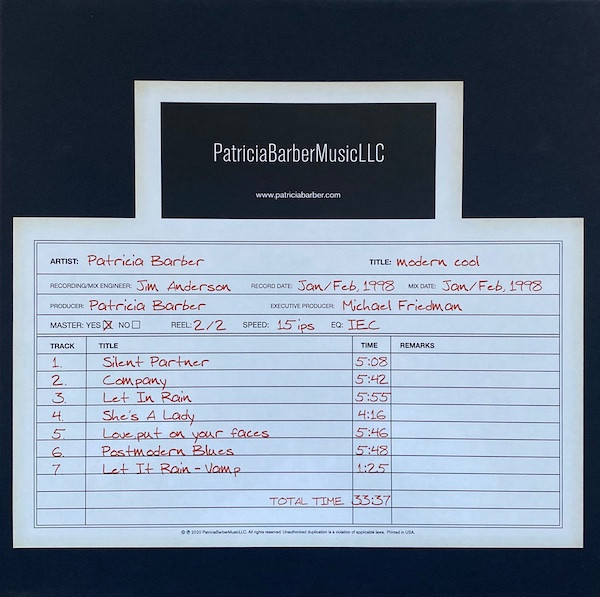 PatriciaBarberMusicLLC
www.patriciabarber.com
ARTIST: Patricia Barber TITLE: modern cool
RECORDING/MIX ENGINEER: Jim Anderson RECORD DATE: Jan/Feb, 1998 MIX DATE: Jan/Feb, 1998
PRODUCER: Patricia Barber EXECUTIVE PRODUCER: Michael Friedman
MASTER: YES ☒ NO ☐ REEL: 2/2 SPEED: 15 ips EQ: IEC
TRACK TITLE TIME REMARKS
1. Silent Partner 5:08
2. Company 5:42
3. Let In Rain 5:55
4. She's A Lady 4:16
5. Love, put on your faces 5:46
6. Postmodern Blues 5:48
7 Let It Rain - Vamp 1:25
TOTAL TIME 33:37
© ℗ 2020 PatriciaBarberMusicLLC. All rights reserved. Unauthorized duplication is a violation of applicable laws. Printed in USA.